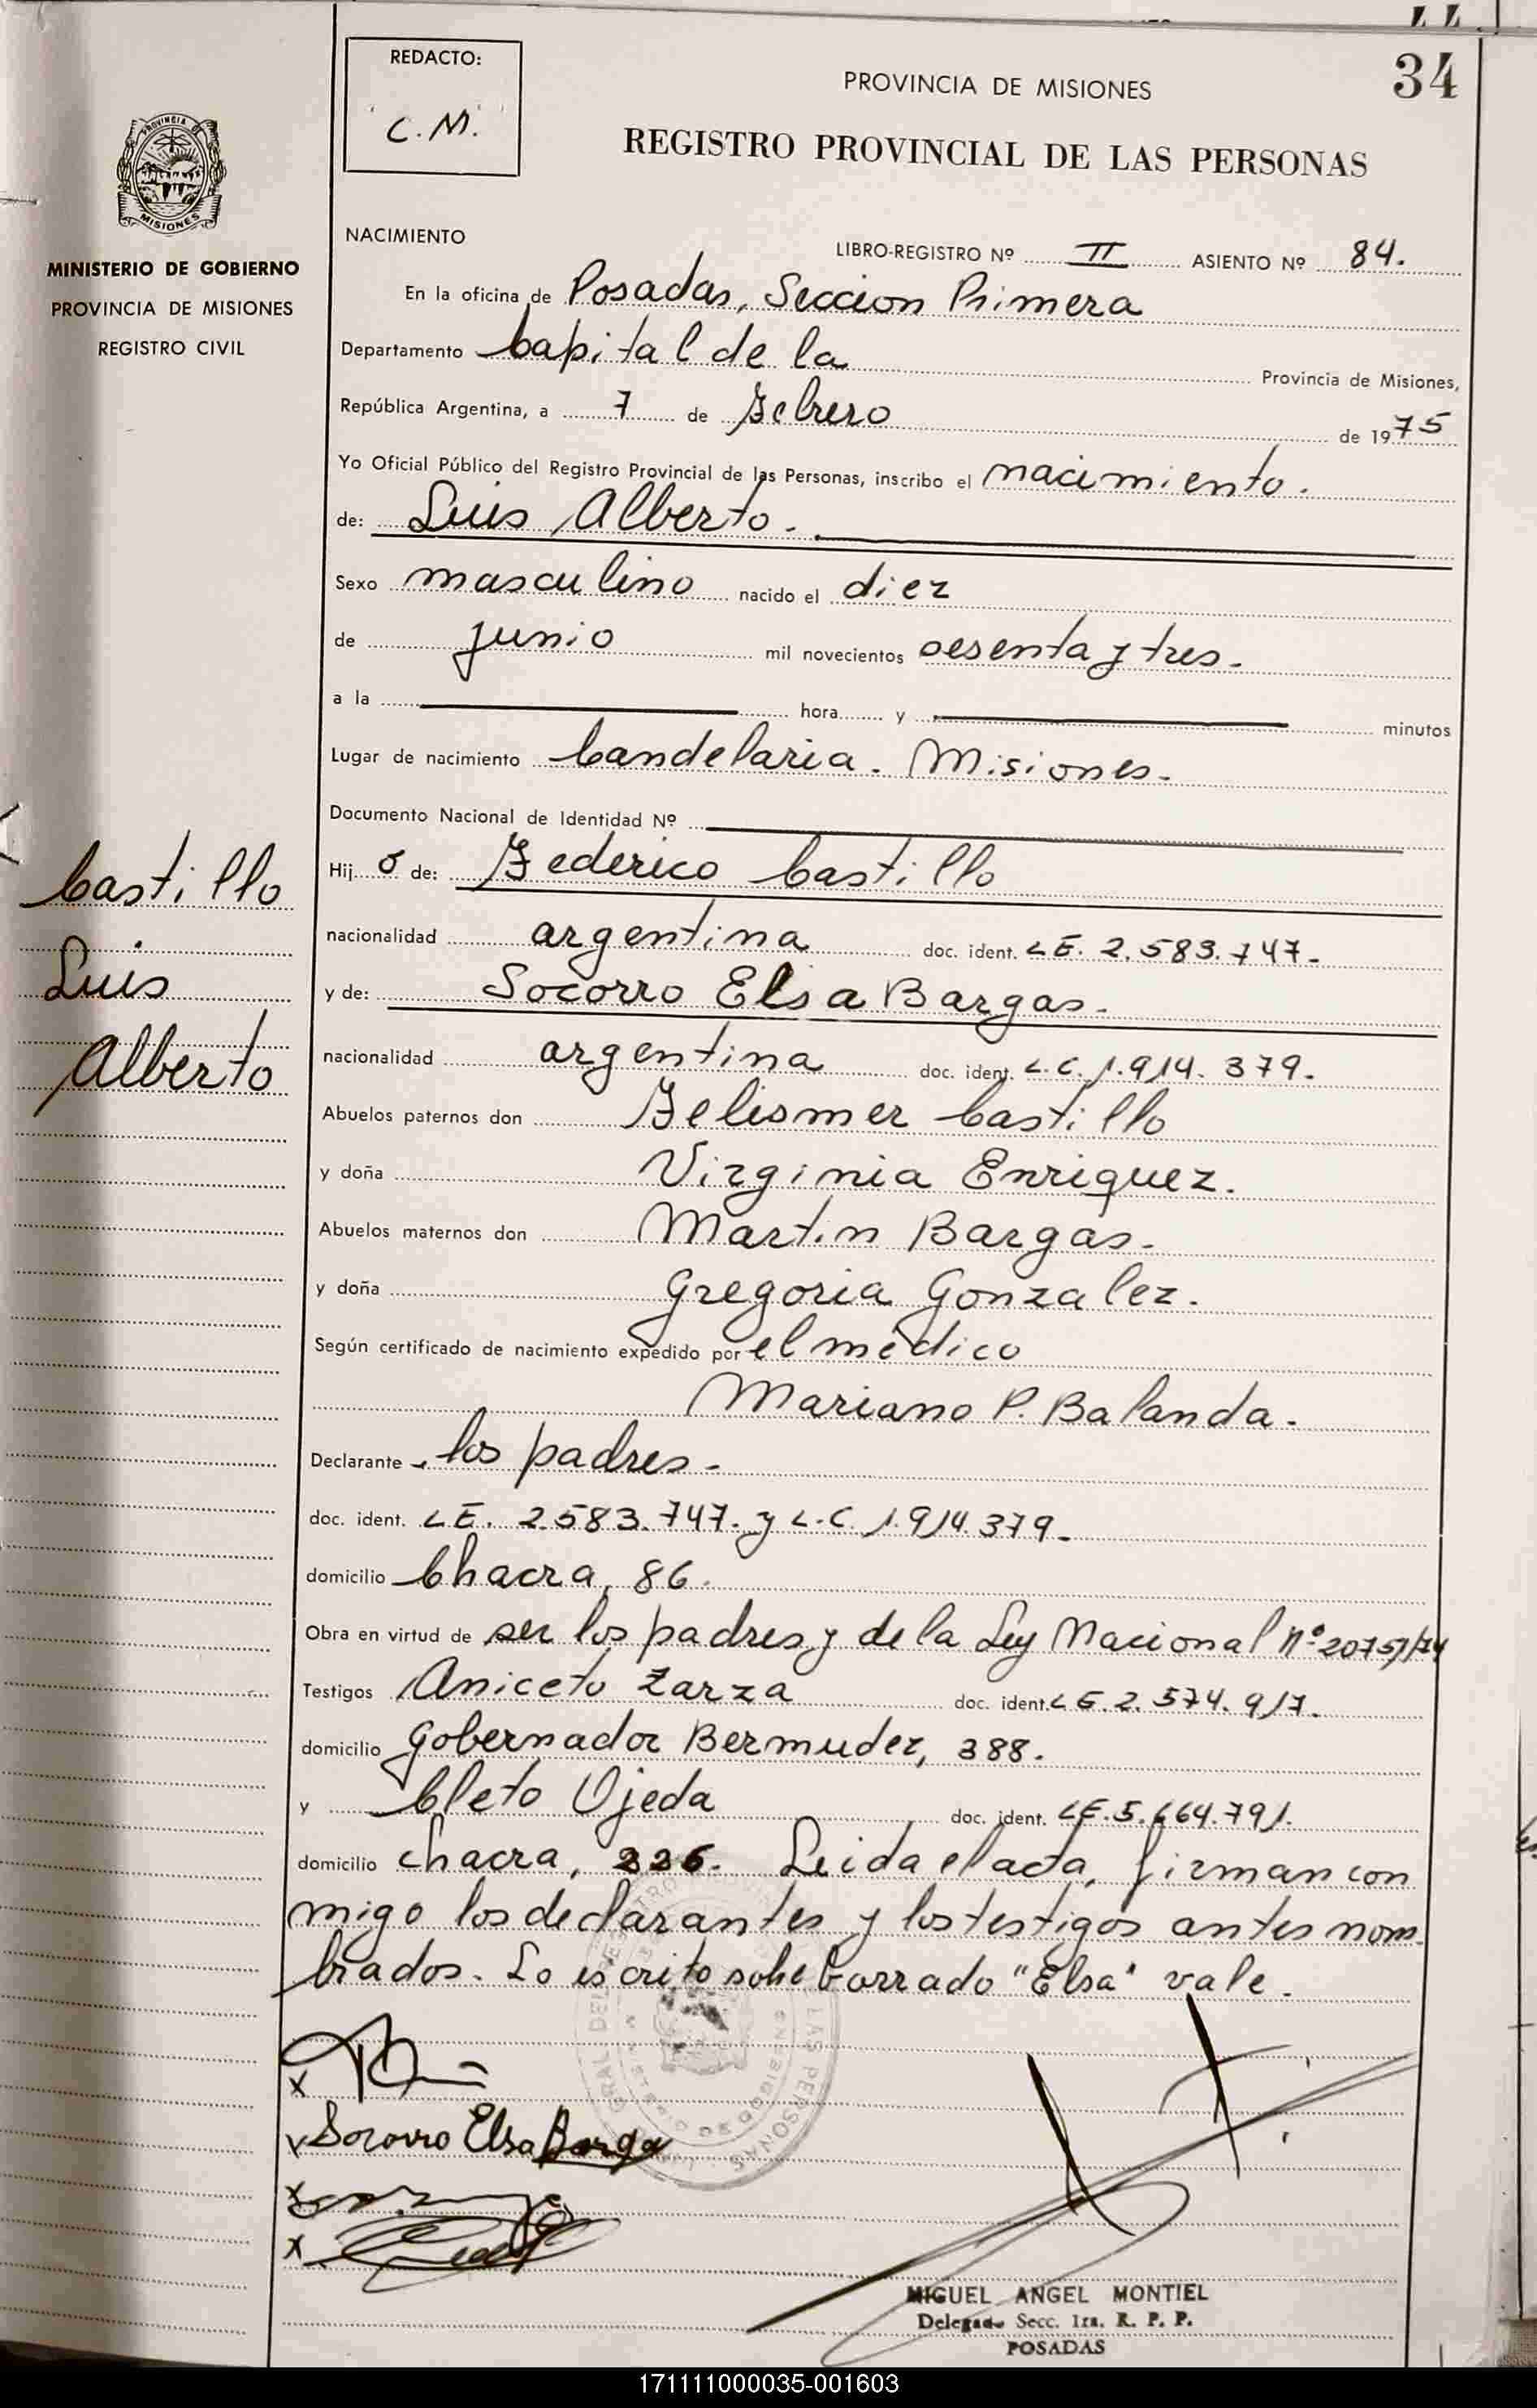 34
REDACTO:
C.M.
PROVINCIA DE MISIONES
REGISTRO PROVINCIAL DE LAS PERSONAS
PROVINCIA DE
MISIONES
MINISTERIO DE GOBIERNO
PROVINCIA DE MISIONES
REGISTRO CIVIL
NACIMIENTO
LIBRO-REGISTRO Nº II ASIENTO Nº 84.
En la oficina de Posadas, Seccion Primera
Departamento Capital de la Provincia de Misiones,
República Argentina, a 7 de Febrero de 1975
Yo Oficial Público del Registro Provincial de las Personas, inscribo el nacimiento.
de: Luis Alberto.
Sexo masculino nacido el diez
de junio mil novecientos sesenta y tres.
a la hora y minutos
Lugar de nacimiento Candelaria. Misiones.
Documento Nacional de Identidad Nº
Hij o de: Federico Castillo
nacionalidad argentina doc. ident. L.E. 2.583.747.
y de: Socorro Elsa Bargas.
nacionalidad argentina doc. ident. L.C. 1.914.379.
Abuelos paternos don Felismer Castillo
y doña Virginia Enriquez.
Abuelos maternos don Martin Bargas.
y doña Gregoria Gonzalez.
Según certificado de nacimiento expedido por el médico
Mariano P. Balanda.
Declarante los padres.
doc. ident. L.E. 2.583.747. y L.C. 1.914.379.
domicilio Chacra, 86.
Obra en virtud de ser los padres y de la Ley Nacional nº 20751/74
Testigos Aniceto Zarza doc. ident. L.E. 2.574.917.
domicilio Gobernador Bermudez, 388.
y Cleto Ojeda doc. ident. L.E. 5.664.791.
domicilio chacra, 226. Leida el acta, firman con
migo los declarantes y los testigos antes nom
brados. Lo escrito sobre borrado "Elsa" vale.
Castillo
Luis
Alberto
Socorro Elsa Barga
MIGUEL ANGEL MONTIEL
Delegado Secc. 1ra. R. P. P.
POSADAS
171111000035-001603